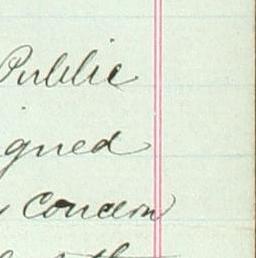 Public
igned
concern